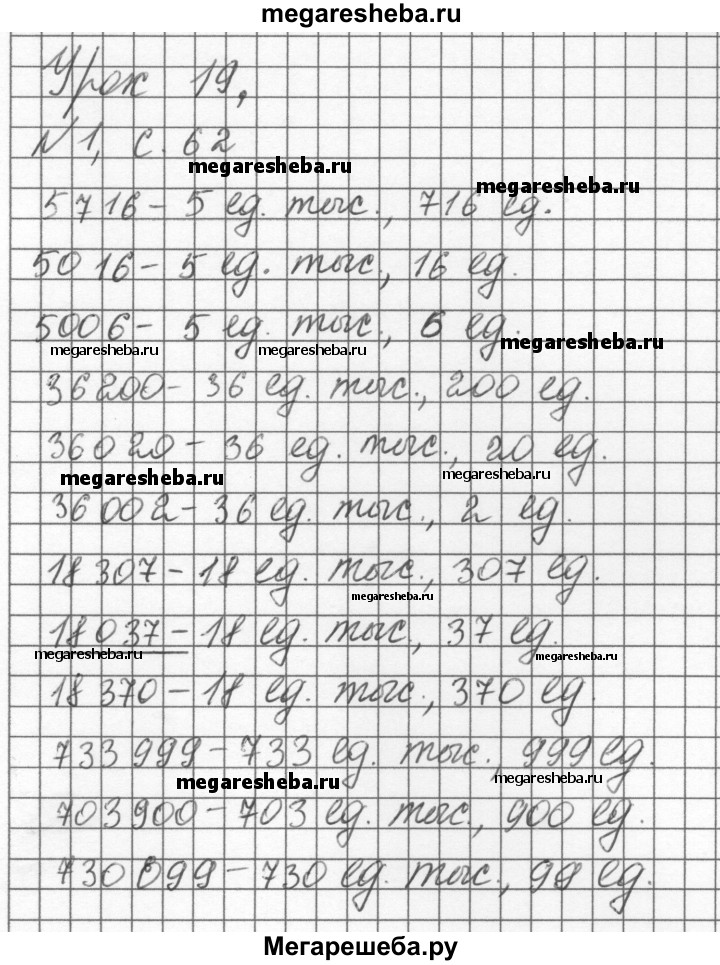 megaresheba.ru
Урок 19,
№1, с. 62
megaresheba.ru
megaresheba.ru
5716 - 5 ед. тыс., 716 ед.
5016 - 5 ед. тыс., 16 ед.
5006 - 5 ед. тыс., 6 ед.
megaresheba.ru
megaresheba.ru
megaresheba.ru
36200 - 36 ед. тыс., 200 ед.
36020 - 36 ед. тыс., 20 ед.
megaresheba.ru
megaresheba.ru
36002 - 36 ед. тыс., 2 ед.
18307 - 18 ед. тыс., 307 ед.
megaresheba.ru
18037 - 18 ед. тыс., 37 ед.
megaresheba.ru
megaresheba.ru
18370 - 18 ед. тыс., 370 ед.
733999 - 733 ед. тыс., 999 ед.
megaresheba.ru
megaresheba.ru
703900 - 703 ед. тыс., 900 ед.
730099 - 730 ед. тыс., 99 ед.
Мегарешеба.ру